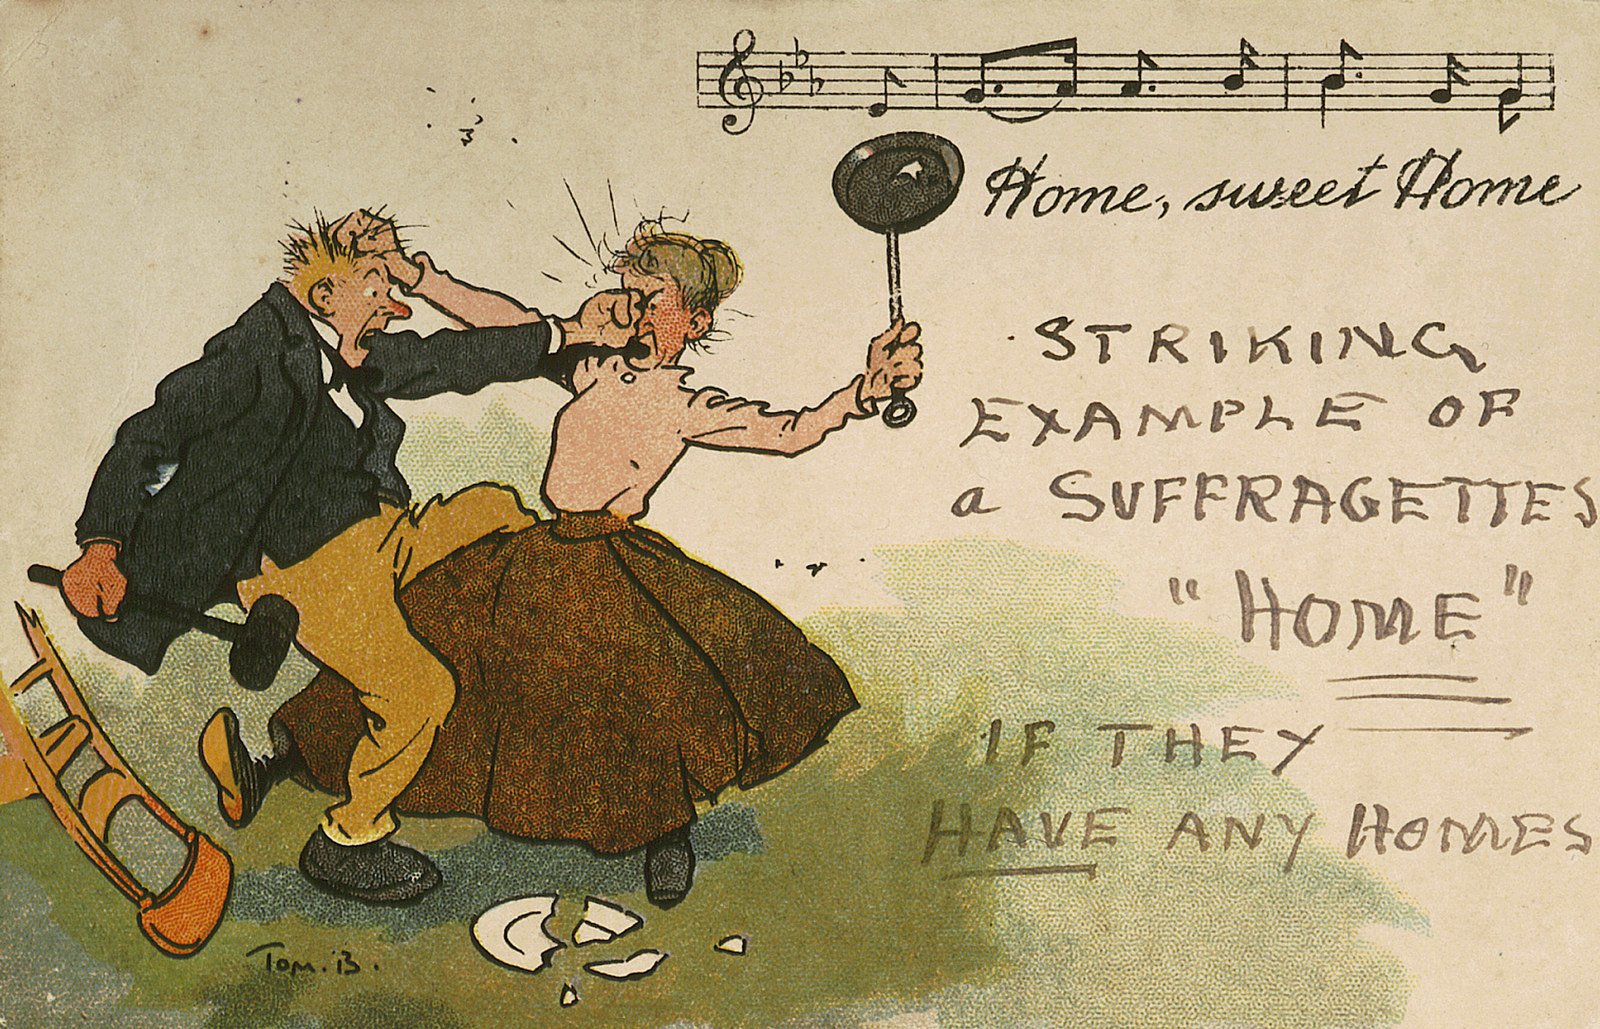 Home, sweet Home
STRIKING
EXAMPLE OF
a SUFFRAGETTES
"HOME"
IF THEY
HAVE ANY HOMES
Tom. B.